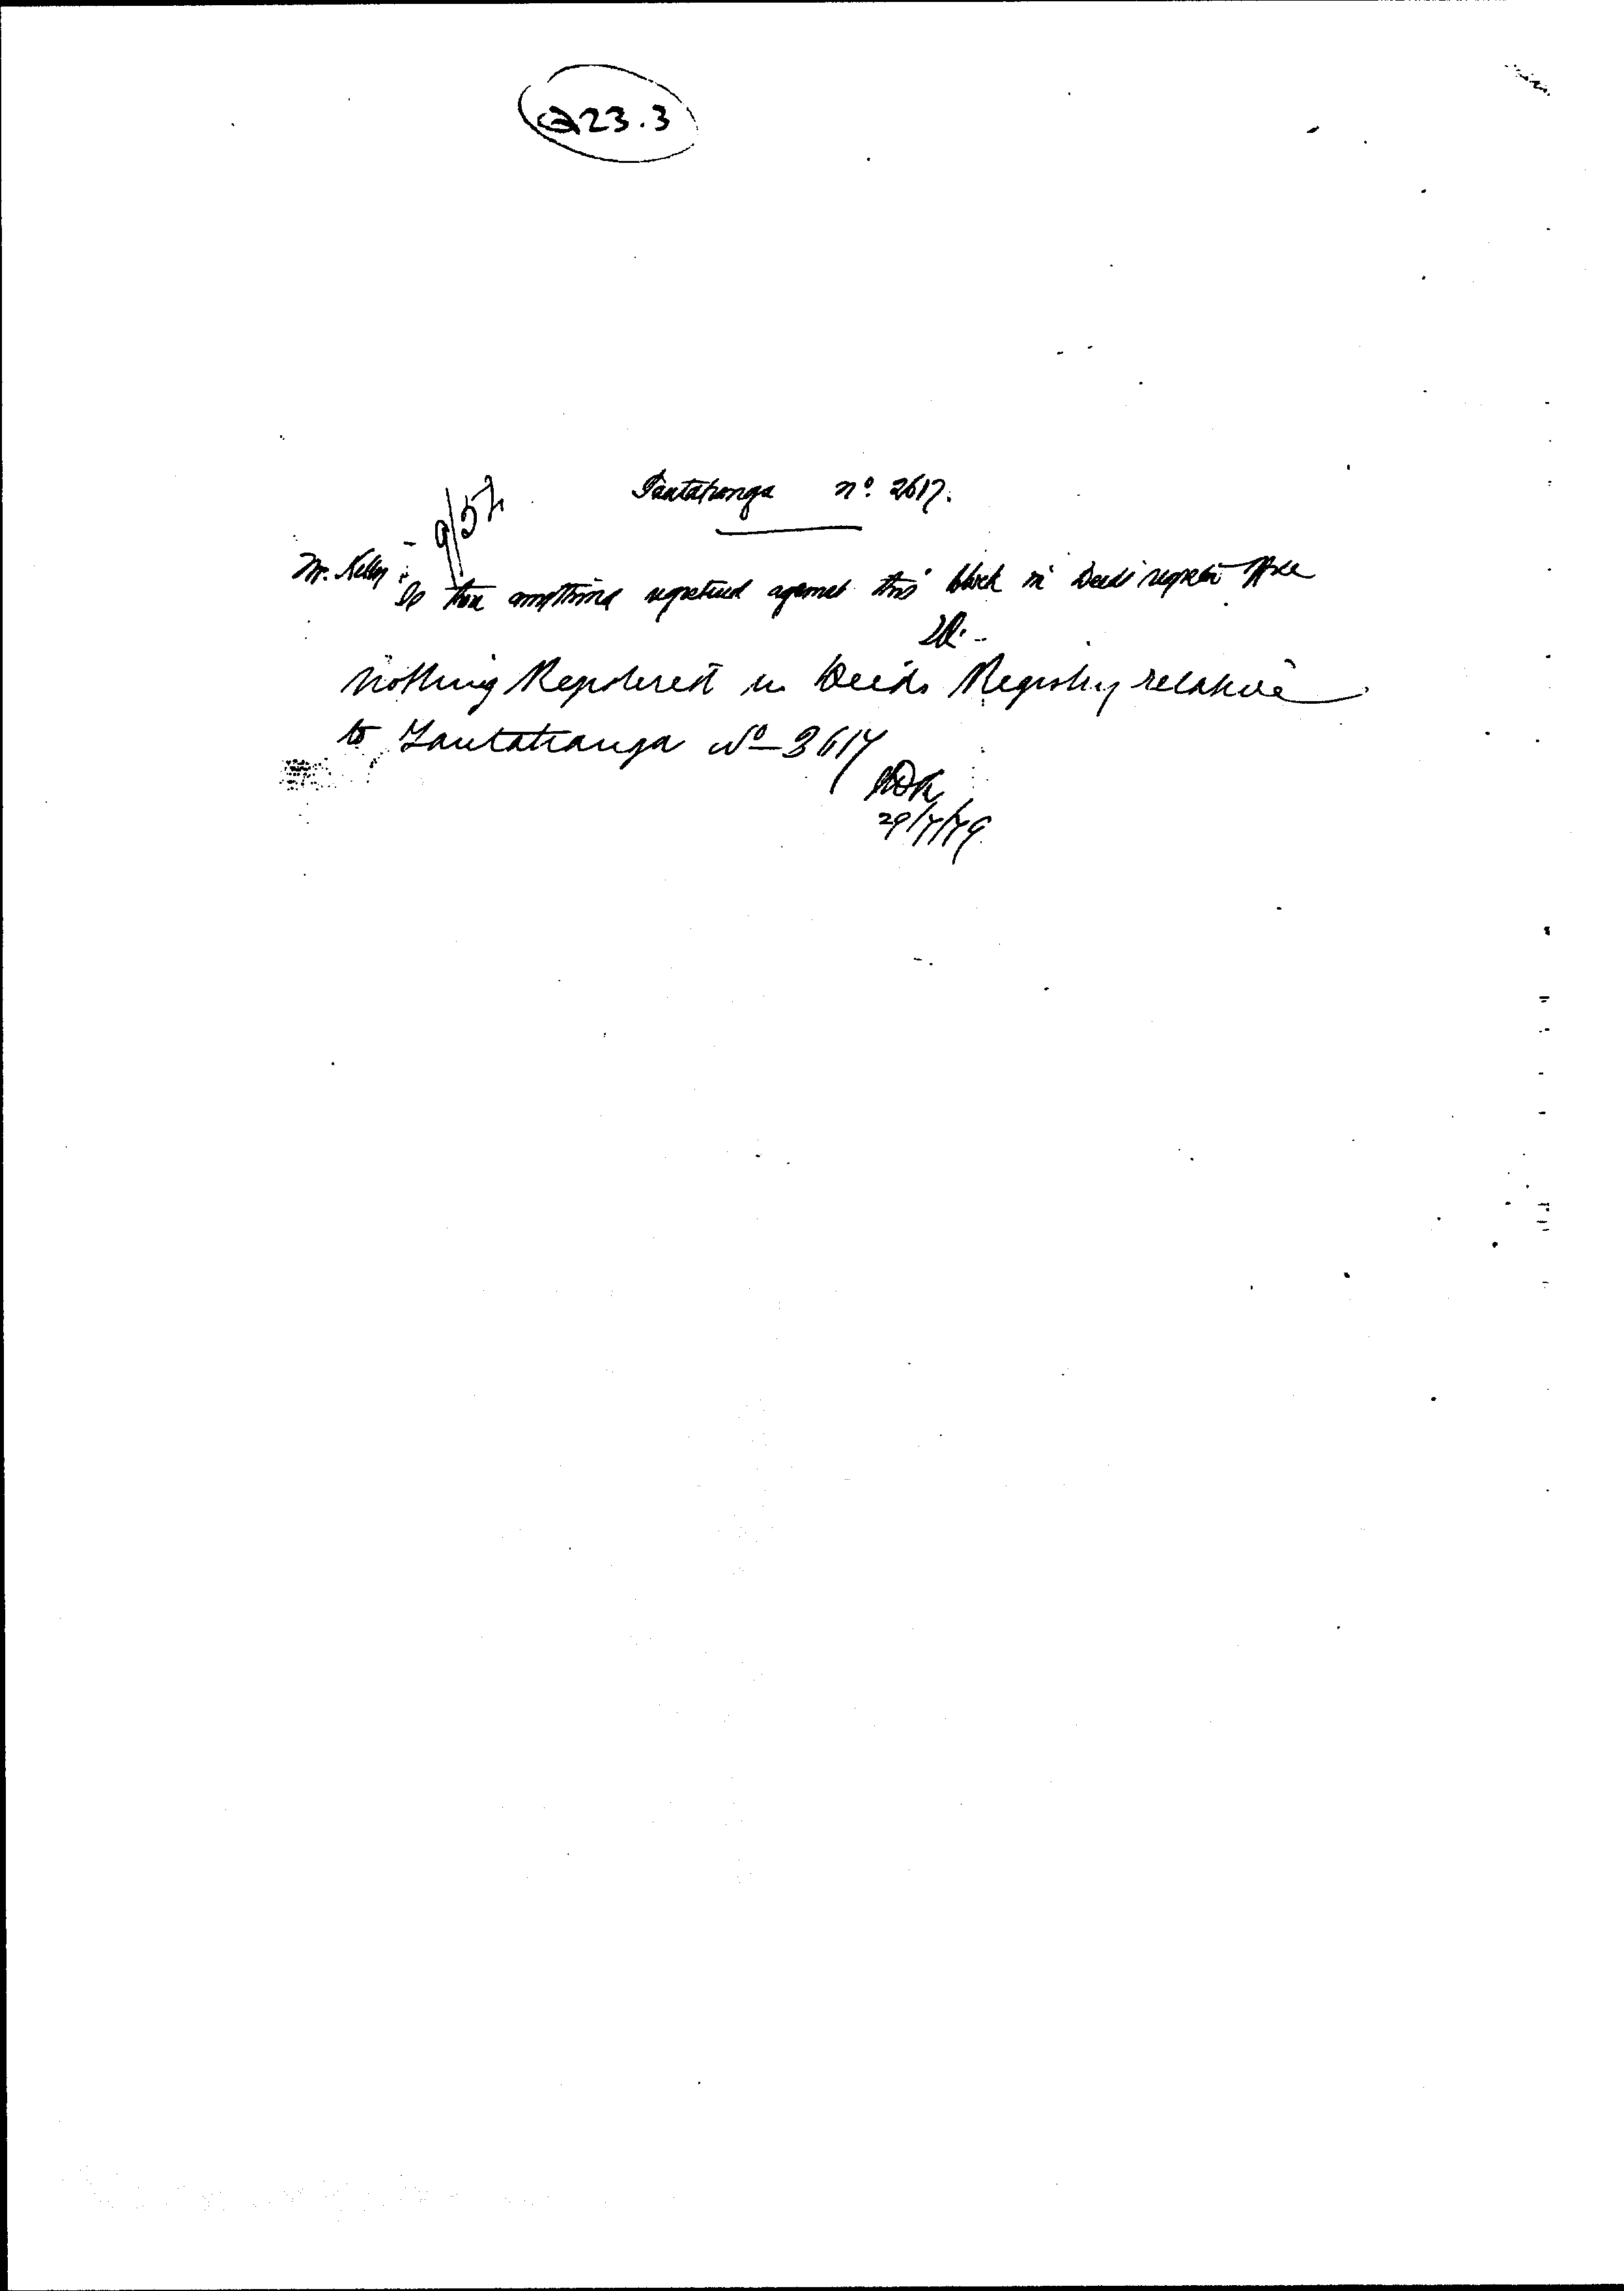 223.3
9/52
Tautahanga No. 2617.
Mr. Kelly :-
Is there anything registered against this block in Deeds register office
Nothing Registered in Deeds Registry relative
to Tautahanga No 2617
29/7/79.